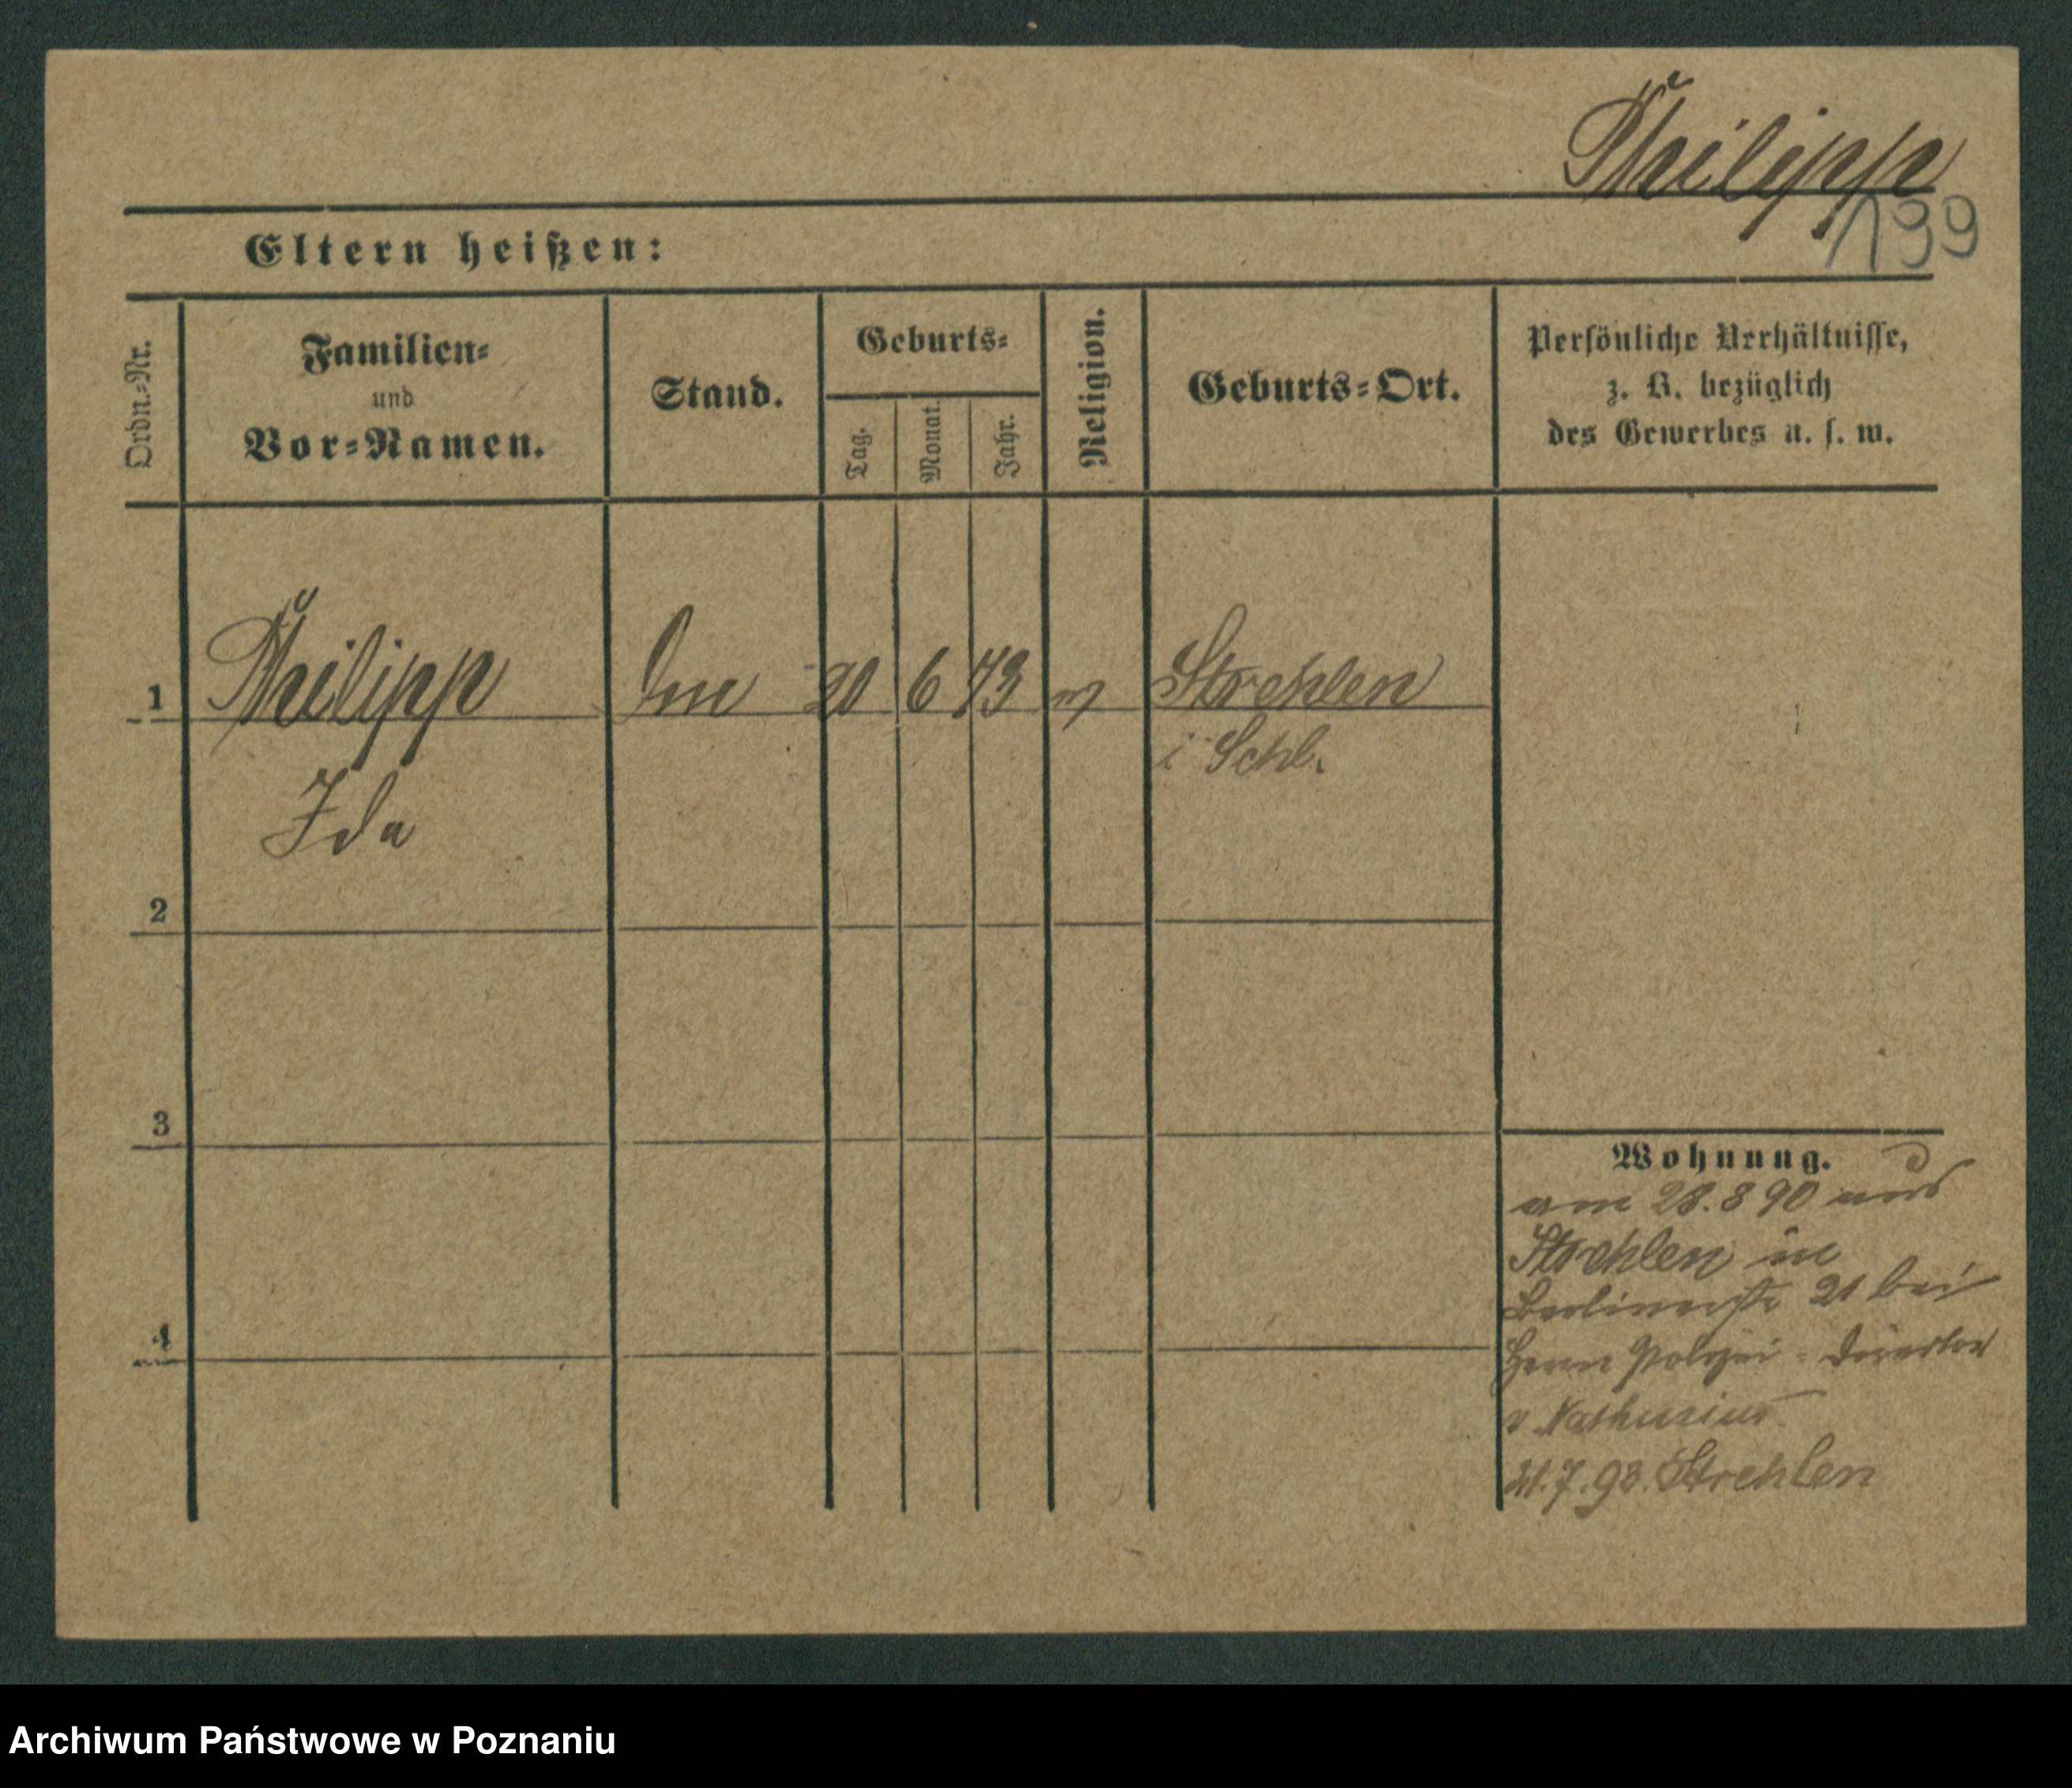 Philipp
199
Eltern heißen:
Ordn.-Nr.
Familien-
und
Vor-Namen.
Stand.
Geburts-
Tag.
Monat.
Jahr.
Religion.
Geburts-Ort.
Persönliche Verhältnisse,
z. B. bezüglich
des Gewerbes u. s. w.
1 Philipp 20 6 73 Strehlen
i Schl.
Ida
2
3
4
Wohnung.
am 28. 8 90 aus
Strehlen in
Berlinerstr 21 bei
Herrn Polizei-Director
v Nathusius
21. 7. 93. Strehlen
Archiwum Państwowe w Poznaniu